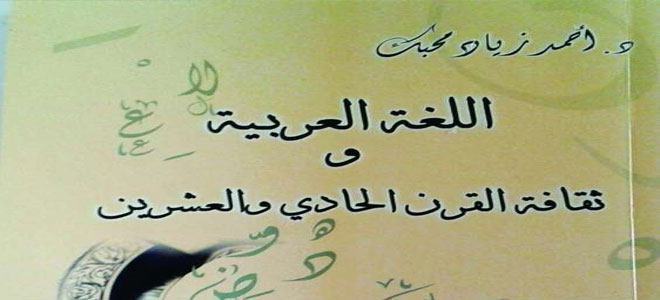 د. أحمد زياد محبك
اللغة العربية
و
ثقافة القرن الحادي والعشرين